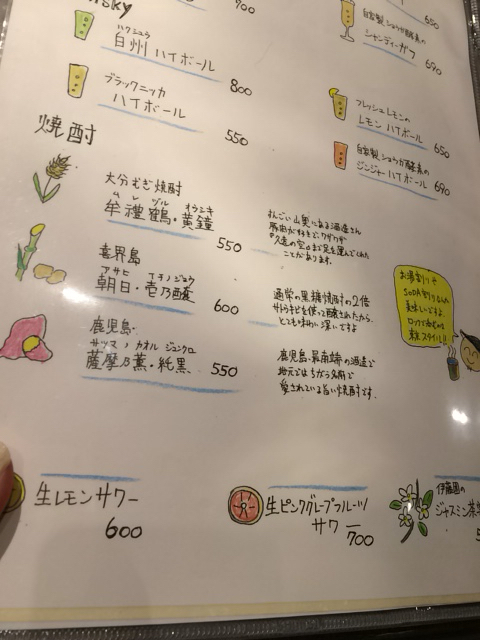 sky
700
ハクシュウ
白州 ハイボール
800
ブラックニッカ
ハイボール
550
650
自家製ショウガ酵素の
シャンディーガフ
690
フレッシュレモンの
レモンハイボール
650
自家製ショウガ酵素の
ジンジャーハイボール
690
焼酎
大分むぎ焼酎
ムレヅル オウシキ
牟禮鶴・黄鐘
550
すんごい山奥にある酒造さん
ことがあります。
喜界島
アサヒ イチノジョウ
朝日・壱乃醸
600
通常の黒糖焼酎の2倍
とても味わい深いですよ
鹿児島
サツマノカオル ジュンクロ
薩摩乃薫・純黒
550
鹿児島、最南端の酒造で
地元ではちがう名前で
愛されている旨い焼酎です。
お湯割りや
SODA割りなんか
美味しいですよ。
生レモンサワー
600
生ピンクグレープフルーツ
サワー
700
伊藤園の
ジャスミン茶